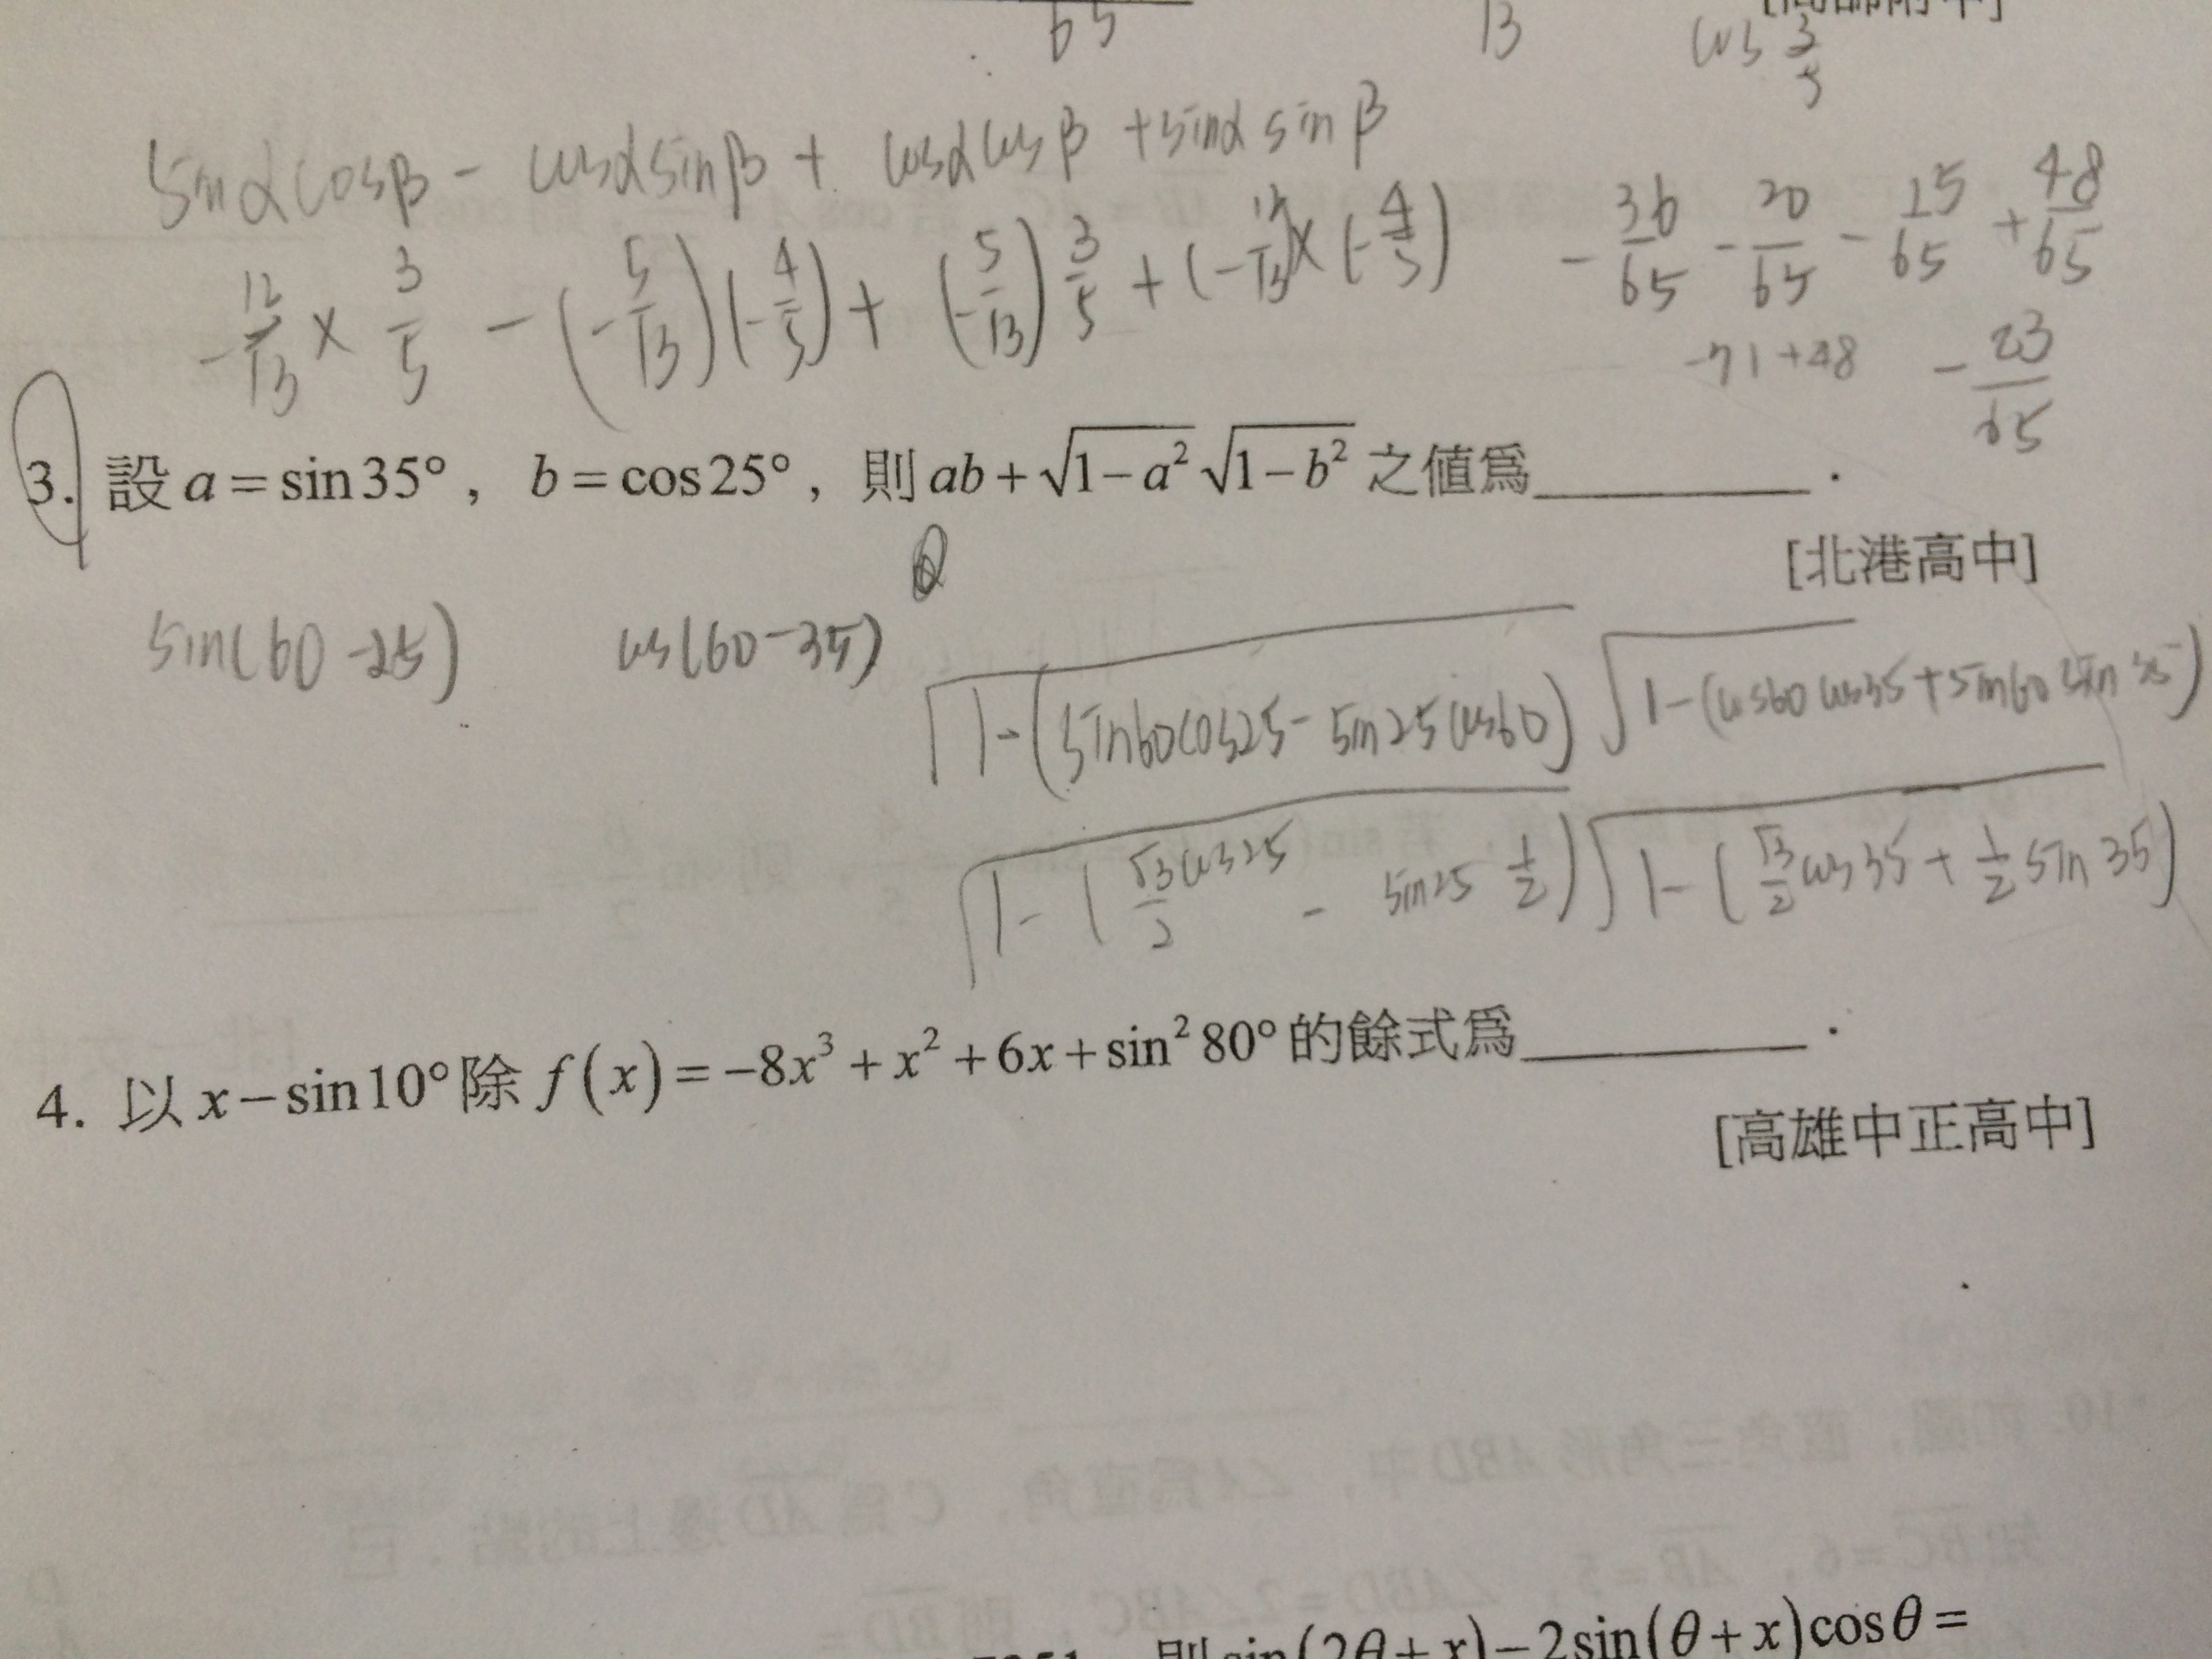 65
13
cos 3/5
sinαcosβ - cosαsinβ + cosαcosβ + sinα sinβ
-12/13 × 3/5 - (-5/13)(-4/5) + (-5/13) 3/5 + (-12/13)×(-4/5)
-36/65 - 20/65 - 15/65 + 48/65
-71+48 -23/65
3. 設 a = sin35°, b = cos25°, 則 ab + √(1-a²) √(1-b²) 之值為________.
[北港高中]
sin(60-25) cos(60-35)
√1-(sin60cos25 - sin25cos60) √1-(cos60cos35+sin60sin35)
√1-(√3/2 cos25 - sin25 1/2) √1-(√3/2 cos35 + 1/2 sin35)
4. 以 x-sin10° 除 f(x) = -8x³ + x² + 6x + sin²80° 的餘式為________.
[高雄中正高中]
則 sin(2θ+x) - 2sin(θ+x)cosθ =